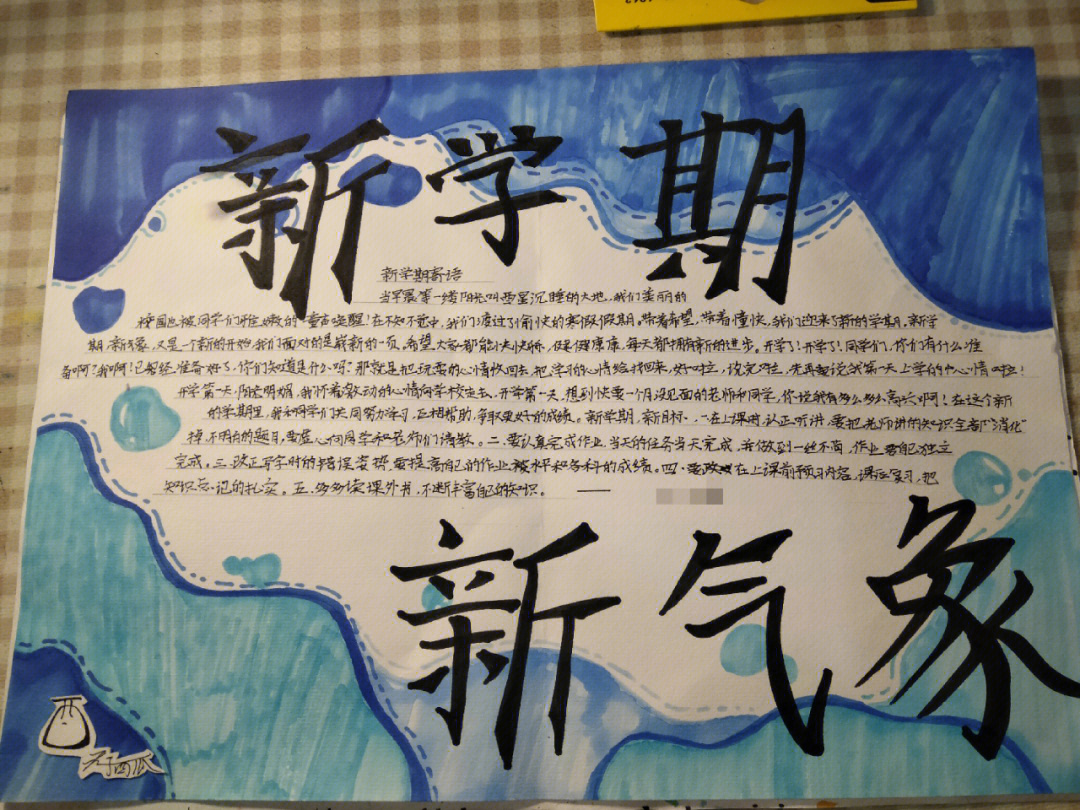 新学期
新学期寄语
当早晨第一缕阳光叫西星沉睡的大地,我们美丽的
校园也被同学们稚嫩的童声唤醒!在不知不觉中,我们度过了愉快的寒假假期。带着希望,带着憧快,我们迎来了新的学期。新学
期,新气象,又是一个新的开始,我们面对的是崭新的一页。希望大家都能快快乐,健健康康,每天都拥有新的进步。开学了!开学了!同学们,你们有什么准
备啊?我啊!已经准备好了,你们知道是什么吗?那就是把玩耍的心情收回去,把学习的心情给找回来,好啦,说完啦,先再说说我第一天上学的心情啦!
开学第一天,阳光明媚,我怀着激动的心情向学校走去。开学第一天,想到快要一个月没见面的老师和同学,你说我有多么多么高兴啊!在这个新
的学期里,我和同学们共同努力学习,互相帮助,争取更好的成绩。新学期,新目标。一在上课时认正听讲,要把老师讲的知识全者"消化"
掉,不明白的题目,要虚心向同学和老师们请教。二.要认真完成作业,当天的任务当天完成,并做到一丝不苟,作业要自己独立
完成。三.改正写字时的错误姿势,要提高自己的作业水平和各科的成绩。四.要改在上课前预习内容,课后复习,把
知识忘记的扎实。五.多多读课外书,不断丰富自己的知识。——
新气象
西
西瓜